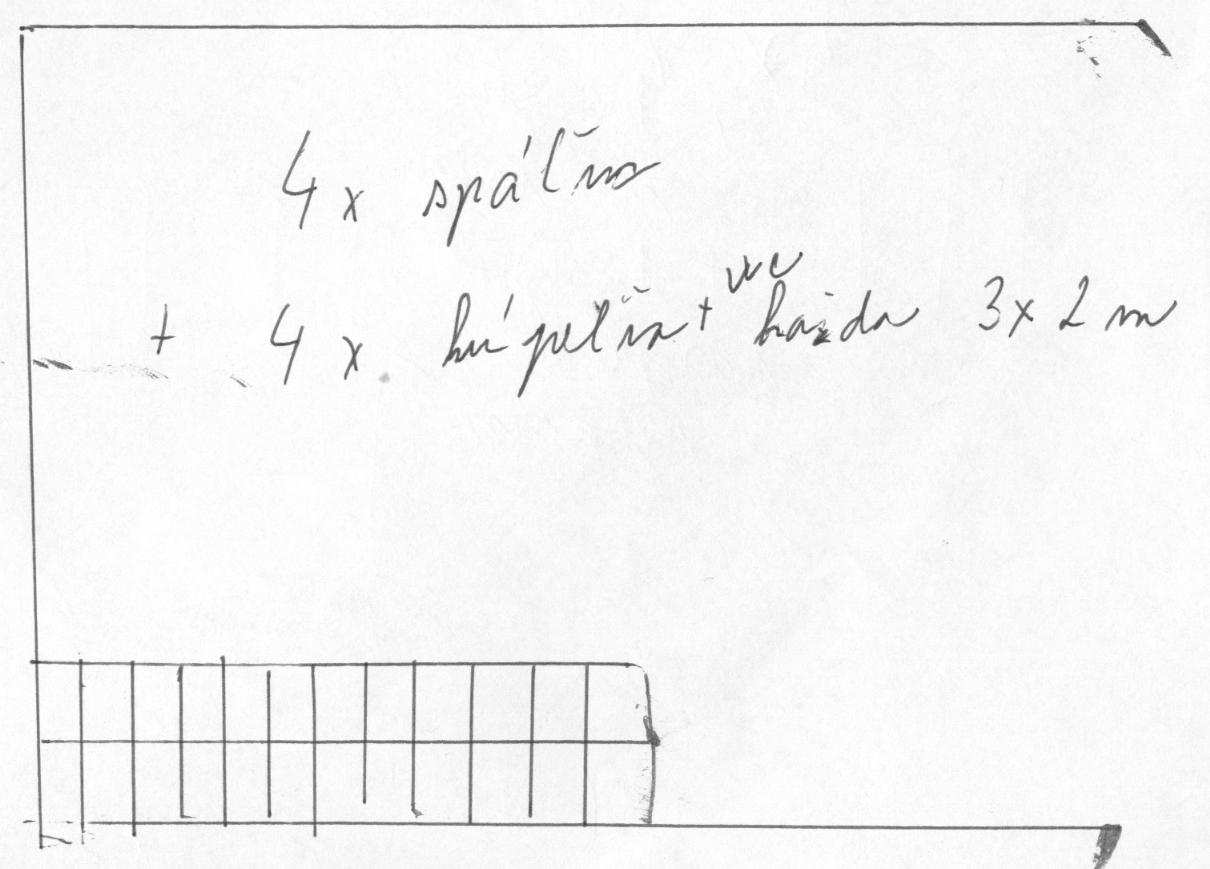 4x spálňa
+ 4x kúpelňa + wc každa 3x2 m